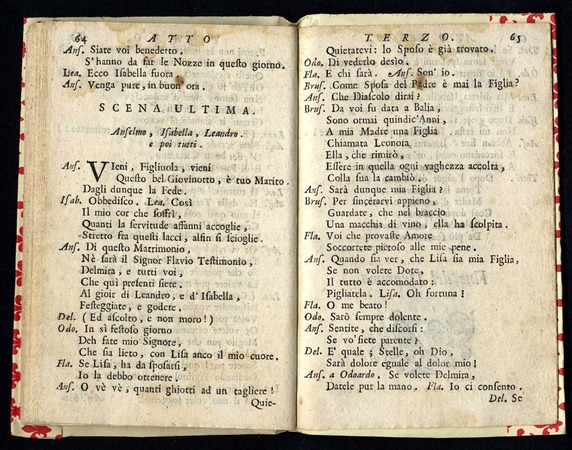 64 ATTO
Ans. Siate voi benedetto.
S'hanno da far le Nozze in questo giorno.
Lea. Ecco Isabella fuora.
Ans. Venga pure, in buon ora.
SCENA ULTIMA.
Anselmo, Isabella, Leandro.
e poi tutti.
Ans. VIeni, Figliuola, vieni
Questo bel Giovinotto, è tuo Marito.
Dagli dunque la Fede.
Isab. Obbedisco. Lea. Così
Il mio cor che soffrì,
Quanti la servitude affanni accoglie,
Stretto fra questi lacci, alfin si scioglie.
Ans. Di questo Matrimonio
Nè sarà il Signor Flavio Testimonio,
Delmira, e tutti voi,
Che quì presenti siete.
Al gioir di Leandro, e d'Isabella,
Festeggiate, e godete.
Del. (Ed ascolto, e non moro!)
Odo. In sì festoso giorno
Deh fate mio Signore,
Che sia lieto, con Lisa anco il mio cuore.
Fla. Se Lisa, ha da sposarsi,
Io la debbo ottenere.
Ans. O vè vè, quanti ghiotti ad un tagliere!
Quie-
TERZO. 65
Quietatevi: lo Sposo è già trovato.
Odo. Di vederlo desìo.
Fla. E chi sarà. Ans. Son' io.
Brus. Come Sposa del Padre è mai la Figlia?
Ans. Che Diascolo dirai?
Brus. Da voi fu data a Balia,
Sono ormai quindic'Anni,
A mia Madre una Figlia
Chiamata Leonora,
Ella, che rimirò,
Essere in quella ogni vaghezza accolta,
Colla sua la cambiò.
Ans. Sarà dunque mia Figlia?
Brus. Per sincerarvi appieno,
Guardate, che nel braccio
Una macchia di vino, ella ha scolpita.
Fla. Voi che provaste Amore
Soccorrete pietoso alle mie pene.
Ans. Quando sia ver, che Lisa sia mia Figlia,
Se non volete Dote,
Il tutto è accomodato:
Pigliatela. Lisa. Oh fortuna!
Fla. O me beato!
Odo. Sarò sempre dolente.
Ans. Sentite, che discorsi:
Se vo'siete parente?
Del. E' quale; Stelle, oh Dio,
Sarà dolore eguale al dolor mio!
Ans. a Odoardo. Se volete Delmira,
Datele pur la mano. Fla. Io ci consento.
Del. Se